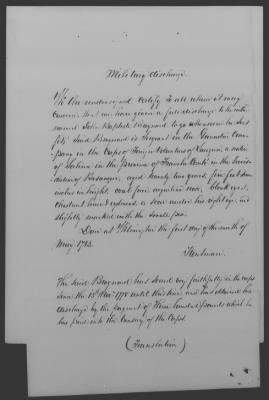 Military discharge.
We the undersigned certify to all whom it may
concern, that we have given a full discharge to the within
named John Baptiste to go wherever he sees
fit; said is Sergeant in the Grenadier Com-
pany in the Corps of Foreign Volunteers of Lauzun, a native
of in the Province of Franche Comté in the
of Besançon, aged twenty two years, five feet two
inches in height, oval face, nose, black eyes,
chestnut hair & eyebrows, a scar under his right eye, and
slightly marked with the small pox.
Done at Wilmington the first day of the month of
May 1783.
The said has served very faithfully in the corps
since the 15 1778 until this time and has obtained his
discharge by the payment of three hundred pounds which he
has paid into the treasury of the Corps.
(Translation)